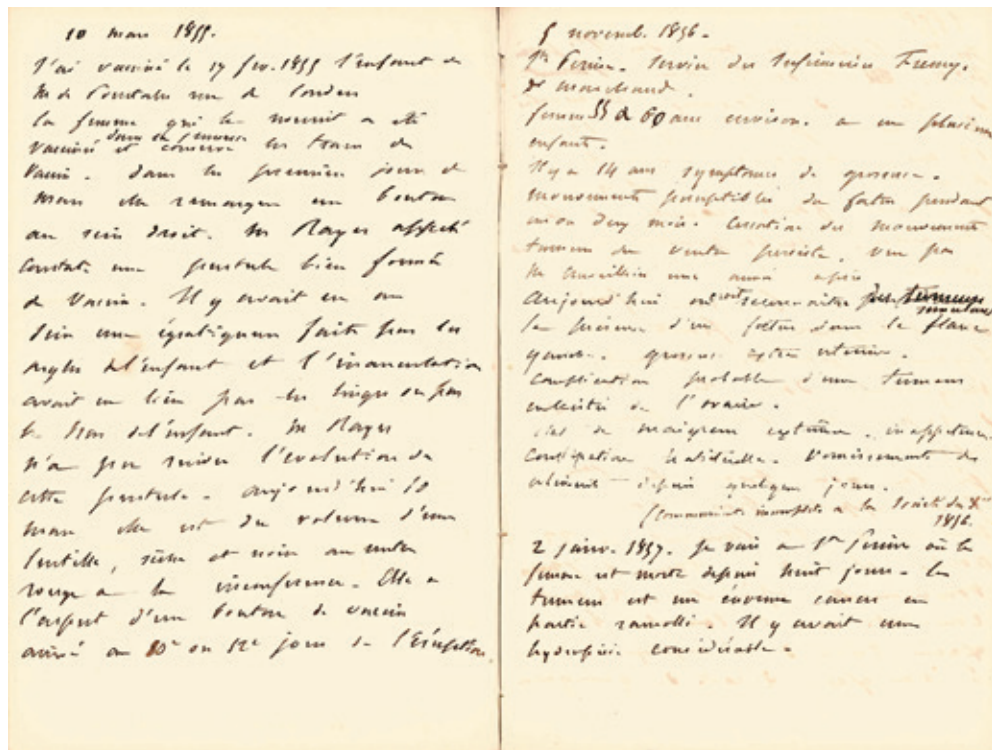 10 mars 1855.
J'ai vacciné le 17 fev. 1855 l'enfant de
M de Pourtalès rue de Londres
la femme qui le nourrit a été
dans sa jeunesse
vaccinée et conserve les traces du
Vaccin. Dans les premiers jours de
Mars elle remarque un bouton
au sein droit. M Rayer appelé
constate une pustule bien formée
de Vaccin. Il y avait eu au
sein une égratignure faite par les
ongles de l'enfant et l'inoculation
avait eu lieu par les linges ou par
le bras de l'enfant. M Rayer
n'a pas suivi l'évolution de
cette pustule. aujourd'hui 10
mars elle est du volume d'une
lentille, sèche et noire au centre
rouge a la circonférence. Elle a
l'aspect d'un bouton de vaccin
arrivé au 10e ou 12e jour de l'Eruption
5 novemb. 1856.
Service des Infirmeries
Dr Marchand.
femme 55 a 60 ans environ. a eu plusieurs
enfants.
Il y a 14 ans symptomes de grossesse.
mouvements perceptibles du foetus pendant
un ou deux mois. Cessation des mouvements
tumeur du ventre persiste. vue par
M une année après
aujourd'hui on croit reconnaitre
la présence d'un foetus dans le flanc
gauche. grossesse extra utérine.
Complication probable d'une tumeur
enkystée de l'ovaire.
Etat de maigreur extrême. inappétence.
Constipation habituelle. Vomissements des
aliments depuis quelques jours.
(Communication incomplète a la Société de
1856.
2 janv. 1857. Je vais a où la
femme est morte depuis huit jours. la
tumeur est un énorme cancer en
partie ramolli. Il y avait une
hydropisie considérable.